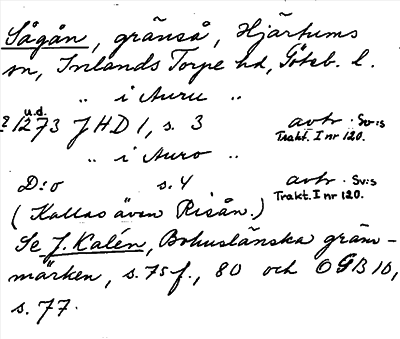 Sågån, gränså, Hjärtums
sn, Inlands Torpe hd, Göteb. l.
" i Auru "
? 1273 u.d. JHD 1, s. 3 avtr. Sv:s Trakt. I nr 120.
" i Auro "
D:o s. 4 avtr. Sv:s Trakt. I nr 120.
(Kallas även Risån.)
Se J. Kalén, Bohuslänska gräns-
märken, s. 75 f., 80 och OGB 10,
s. 77.